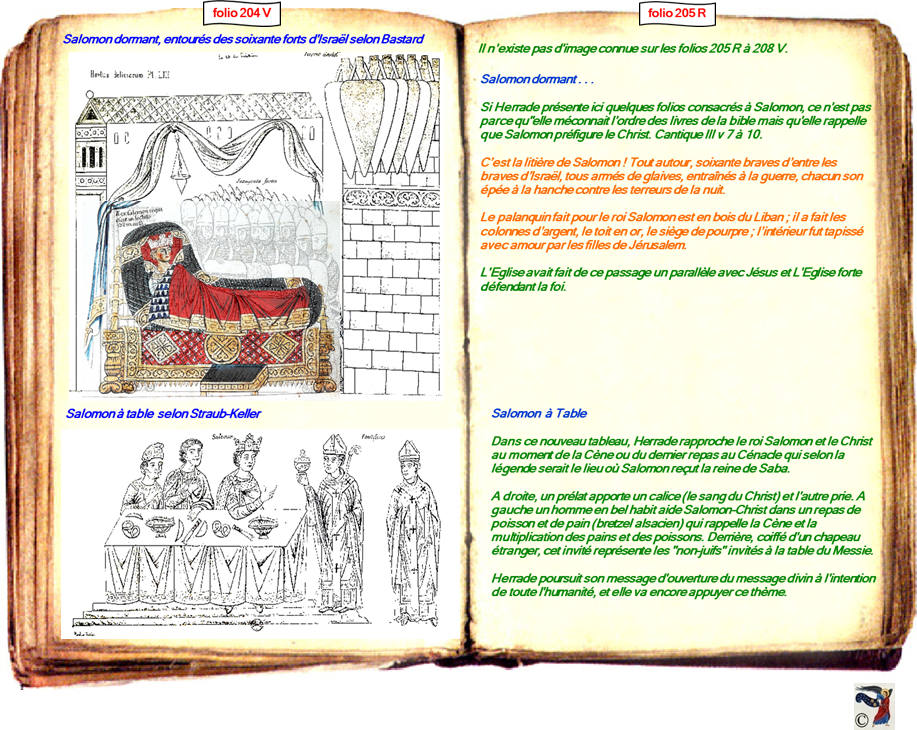 folio 204 V
Salomon dormant, entourés des soixante forts d'Israël selon Bastard
Hortus deliciarum Pl. LIII
Salomon à table selon Straub-Keller
Salomon
Pontifices
folio 205 R
Il n'existe pas d'image connue sur les folios 205 R à 208 V.
Salomon dormant . . .
Si Herrade présente ici quelques folios consacrés à Salomon, ce n'est pas
parce qu''elle méconnait l'ordre des livres de la bible mais qu'elle rappelle
que Salomon préfigure le Christ. Cantique III v 7 à 10.
C'est la litière de Salomon ! Tout autour, soixante braves d'entre les
braves d'Israël, tous armés de glaives, entraînés à la guerre, chacun son
épée à la hanche contre les terreurs de la nuit.
Le palanquin fait pour le roi Salomon est en bois du Liban ; il a fait les
colonnes d'argent, le toit en or, le siège de pourpre ; l'intérieur fut tapissé
avec amour par les filles de Jérusalem.
L'Eglise avait fait de ce passage un parallèle avec Jésus et L'Eglise forte
défendant la foi.
Salomon à Table
Dans ce nouveau tableau, Herrade rapproche le roi Salomon et le Christ
au moment de la Cène ou du dernier repas au Cénacle qui selon la
légende serait le lieu où Salomon reçut la reine de Saba.
A droite, un prélat apporte un calice (le sang du Christ) et l'autre prie. A
gauche un homme en bel habit aide Salomon-Christ dans un repas de
poisson et de pain (bretzel alsacien) qui rappelle la Cène et la
multiplication des pains et des poissons. Derrière, coiffé d'un chapeau
étranger, cet invité représente les "non-juifs" invités à la table du Messie.
Herrade poursuit son message d'ouverture du message divin à l'intention
de toute l'humanité, et elle va encore appuyer ce thème.
©